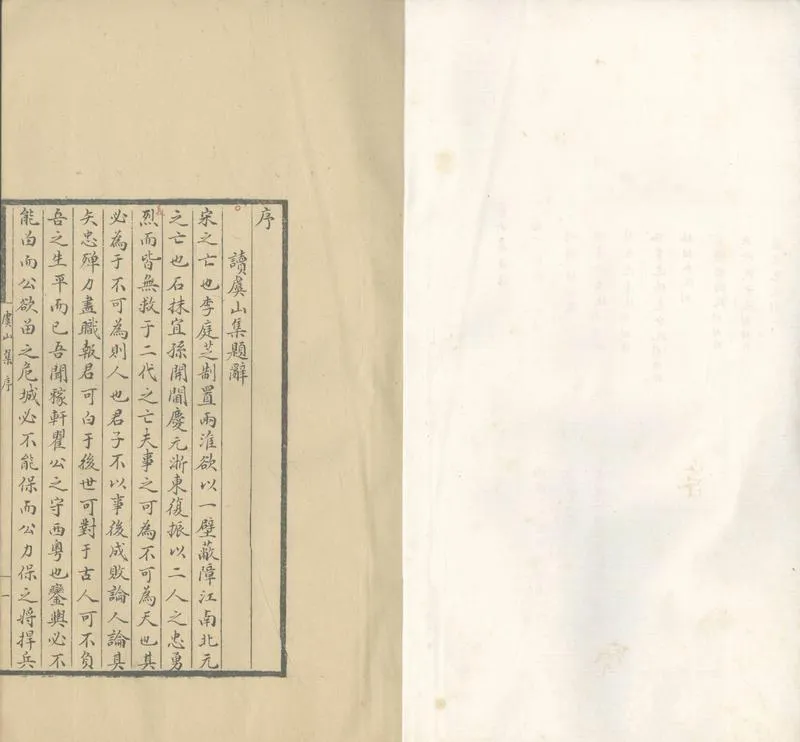 序
讀虞山集題辭
宋之亡也李庭芝制置兩淮欲以一壁蔽障江南北元
之亡也石抹宜孫開閫慶元浙東復振以二人之忠勇
烈而皆無救于二代之亡夫事之可為不可為天也其
必為于不可為則人也君子不以事後成敗論人論其
矢忠殫力盡職報君可白于後世可對于古人可不負
吾之生平而已吾聞稼軒瞿公之守西粵也鑾輿必不
能留而公欲留之危城必不能保而公力保之將捍兵
虞山集 序
一